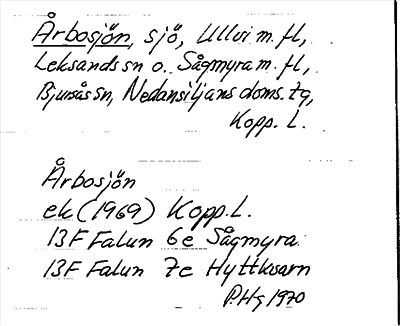 Årbosjön, sjö, Ullvi m. fl,
Leksands sn o. Sågmyra m. fl,
Bjursås sn, Nedansiljans doms. tg,
Kopp. L.
Årbosjön
ek (1969) Kopp. L.
13F Falun 6e Sågmyra
13F Falun 7e Hyttkvarn
P.Hg 1970